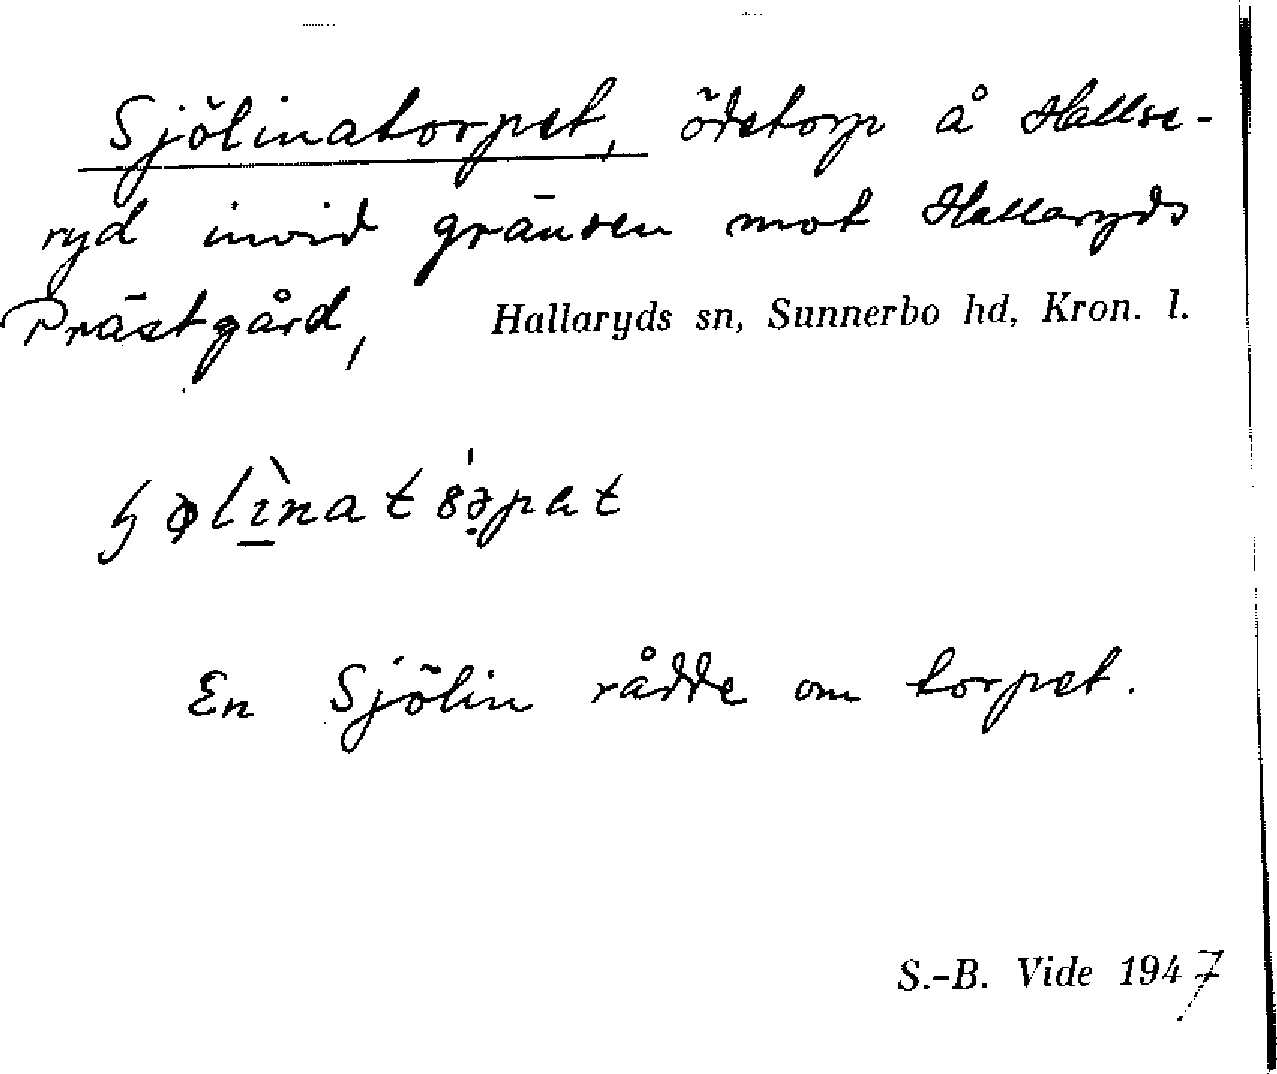 Sjölinatorpet, ödetorp å Hallse-
ryd invid gränsen mot Hallaryds
Prästgård, Hallaryds sn, Sunnerbo hd, Kron. l.
En Sjölin rådde om torpet.
S.-B. Vide 1947